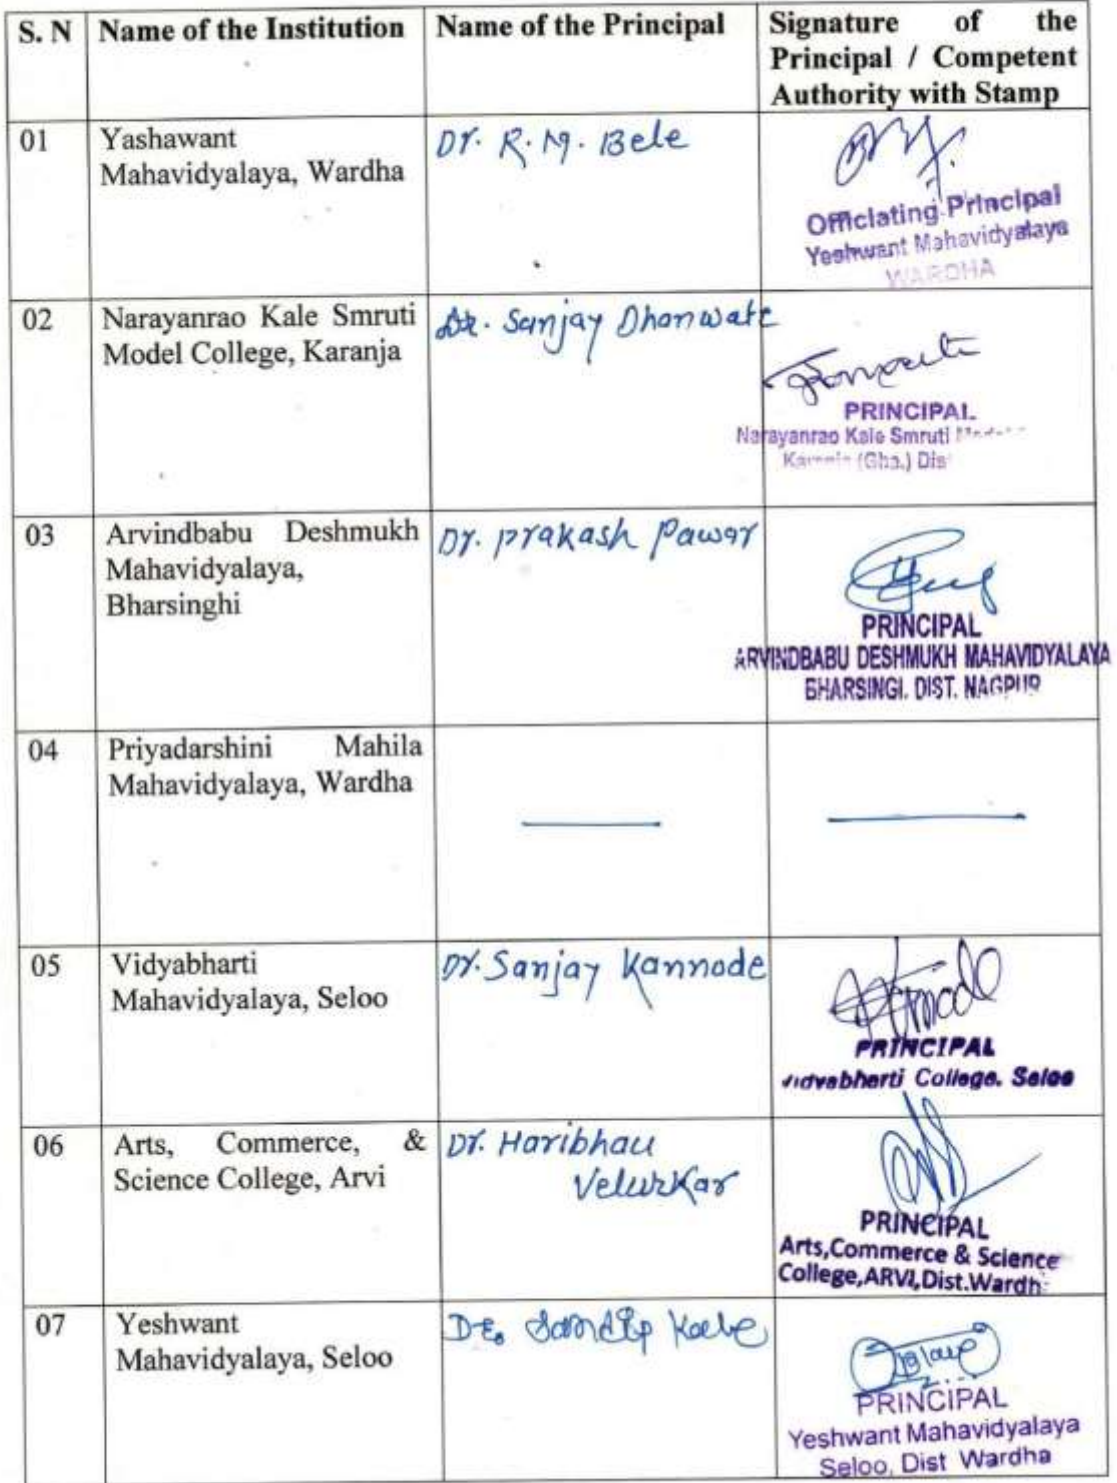 S. N Name of the Institution Name of the Principal Signature of the
Principal / Competent
Authority with Stamp
01 Yashawant
Mahavidyalaya, Wardha
Dr. R. M. Bele
Officiating Principal
Yeshwant Mahavidyalaya
WARDHA
02 Narayanrao Kale Smruti
Model College, Karanja
Dr. Sanjay Dhanwate
PRINCIPAL
Narayanrao Kale Smruti
(Gha.) Dis
03 Arvindbabu Deshmukh
Mahavidyalaya,
Bharsinghi
Dr. Prakash Pawar
PRINCIPAL
ARVINDBABU DESHMUKH MAHAVIDYALAYA
BHARSINGI. DIST. NAGPUR
04 Priyadarshini Mahila
Mahavidyalaya, Wardha
05 Vidyabharti
Mahavidyalaya, Seloo
Dr. Sanjay Kannode
PRINCIPAL
Vidyabharti College. Seloo
06 Arts, Commerce, &
Science College, Arvi
Dr. Haribhau
Velurkar
PRINCIPAL
Arts,Commerce & Science
College,ARVI,Dist.Wardh
07 Yeshwant
Mahavidyalaya, Seloo
Dr. Sandip Kale
PRINCIPAL
Yeshwant Mahavidyalaya
Seloo, Dist Wardha